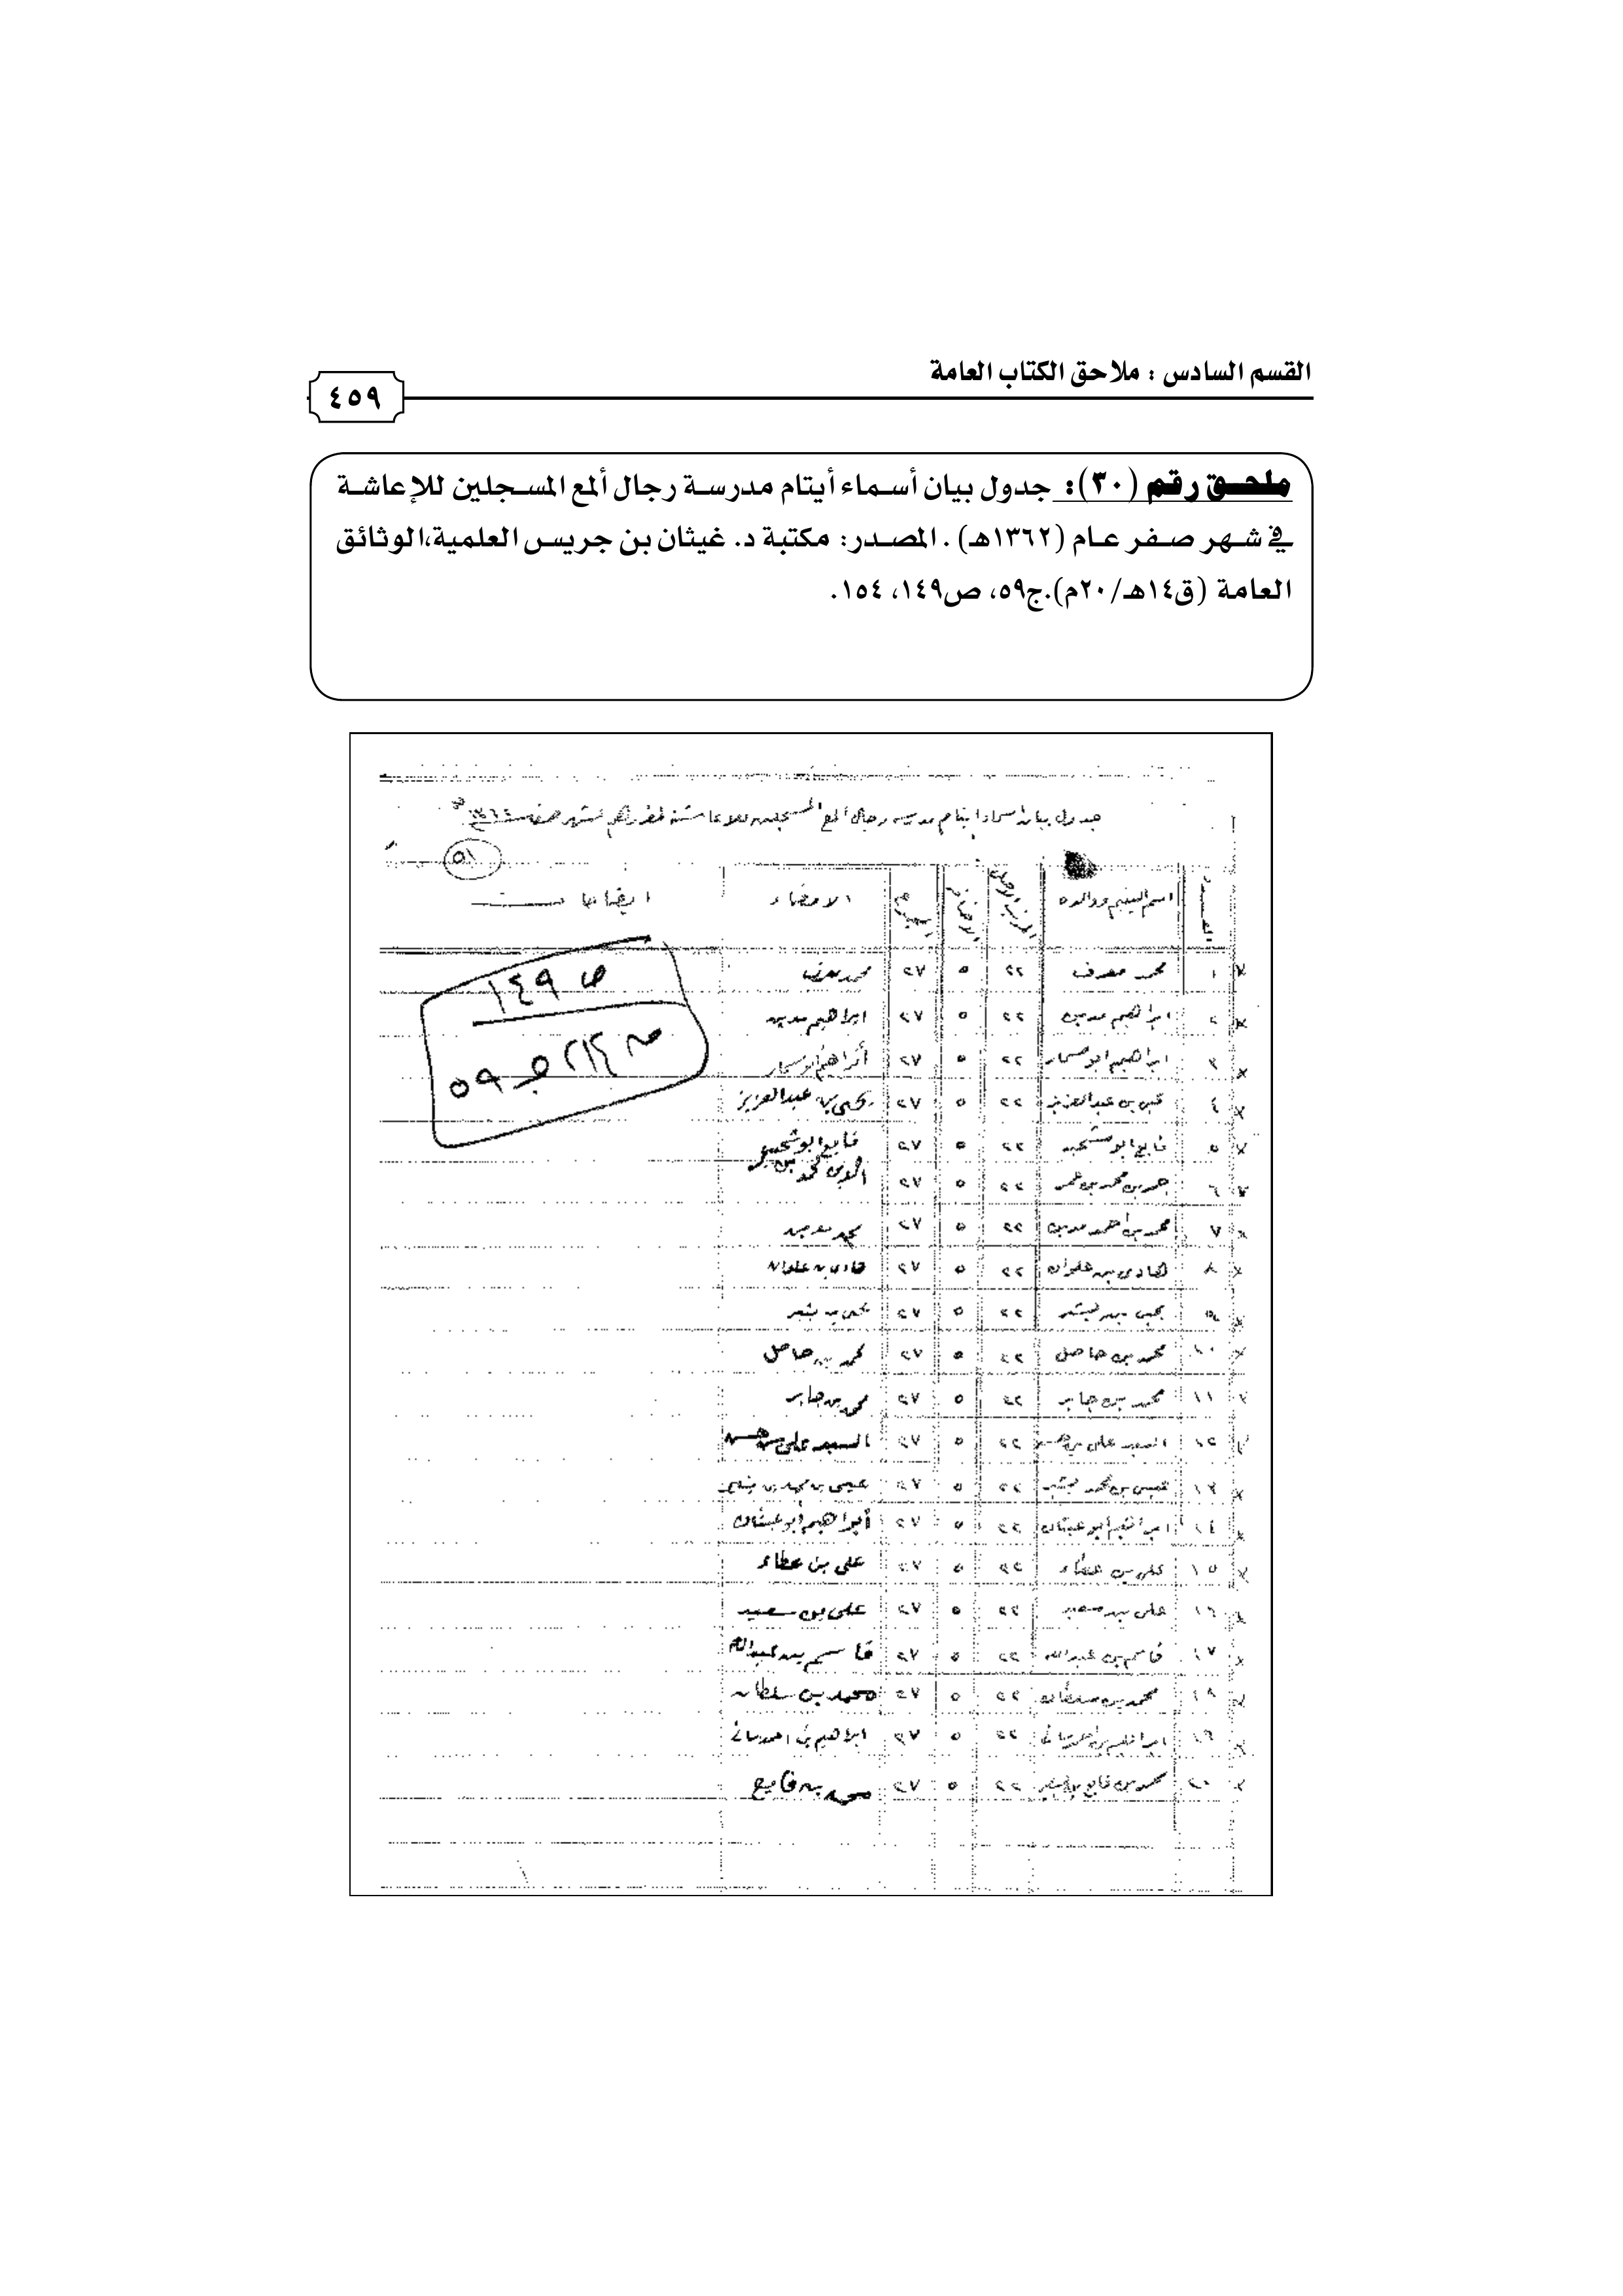 القسم السادس : ملاحق الكتاب العامة
٤٥٩
ملحق رقم (٣٠): جدول بيان أسماء أيتام مدرسة رجال ألمع المسجلين للإعاشة
في شهر صفر عام (١٣٦٢هـ) . المصدر: مكتبة د. غيثان بن جريس العلمية،الوثائق
العامة (ق١٤هـ/٢٠م).ج٥٩، ص١٤٩، ١٥٤.
جدول بيان اسماء ايتام مدرسة رجال المع المسجلين للاعاشة لشهر صفر
٥١
اسم اليتيم ووالده الامضاء ايضاحات
ص ١٤٩
٥٩
١ محمد ٢٢ ٥ ٢٧ محمد
٢ ابراهيم مدين ٢٢ ٥ ٢٧ ابراهيم مدين
٣ ابراهيم ابو ٢٢ ٥ ٢٧
٤ بن عبدالعزيز ٢٢ ٥ ٢٧ يحيى بن عبدالعزيز
٥ فايع ابو ٢٢ ٥ ٢٧ فايع ابو
٦ بن محمد بن ٢٢ ٥ ٢٧
٧ محمد بن احمد مدين ٢٢ ٥ ٢٧ محمد
٨ هادى بن علوان ٢٢ ٥ ٢٧ هادى بن علوان
٩ يحيى بن ٢٢ ٥ ٢٧ يحيى بن
١٠ محمد بن حاصل ٢٢ ٥ ٢٧ محمد بن حاصل
١١ محمد بن جابر ٢٢ ٥ ٢٧ محمد بن جابر
١٢ السيد على بن حسن ٢٢ ٥ ٢٧ السيد على بن حسن
١٣ عيسى بن محمد ٢٢ ٥ ٢٧ عيسى بن محمد بن
١٤ ابراهيم ابو عبثان ٢٢ ٥ ٢٧ أبراهيم أبو عبثان
١٥ على بن عطاء ٢٢ ٥ ٢٧ على بن عطاء
١٦ على بن سعيد ٢٢ ٥ ٢٧ على بن سعيد
١٧ قاسم بن عبدالله ٢٢ ٥ ٢٧ قاسم بن عبدالله
١٨ محمد بن سلطان ٢٢ ٥ ٢٧ محمد بن سلطان
١٩ ابراهيم بن احمد ٢٢ ٥ ٢٧ ابراهيم بن احمد
٢٠ محمد بن فايع ٢٢ ٥ ٢٧ محمد بن فايع